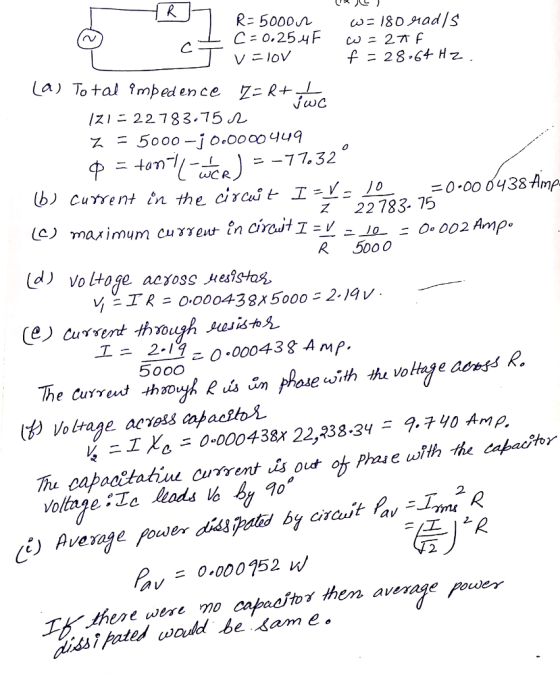 R
R = 5000Ω
ω = 180 rad/s
C
C = 0.25 μF
ω = 2πf
V = 10V
f = 28.64 Hz.
(a) Total impedence Z = R + 1/jωC
|Z| = 22783.75 Ω
Z = 5000 - j 0.0000449
ϕ = tan⁻¹(-1/ωCR) = -77.32°
(b) current in the circuit I = V/Z = 10/22783.75 = 0.000438 Amp
(c) maximum current in circuit I = V/R = 10/5000 = 0.002 Amp.
(d) voltage across resistor
V₁ = IR = 0.000438 x 5000 = 2.19 V.
(e) current through resistor
I = 2.19/5000 = 0.000438 Amp.
The current through R is in phase with the voltage across R.
(f) voltage across capacitor
V₂ = I Xc = 0.000438 x 22,238.34 = 9.740 Amp.
The capacitative current is out of phase with the capacitor
voltage : Ic leads Vc by 90°
(i) Average power dissipated by circuit Pav = Irms² R
= (I/√2)² R
Pav = 0.000952 W
If there were no capacitor then average power
dissipated would be same.